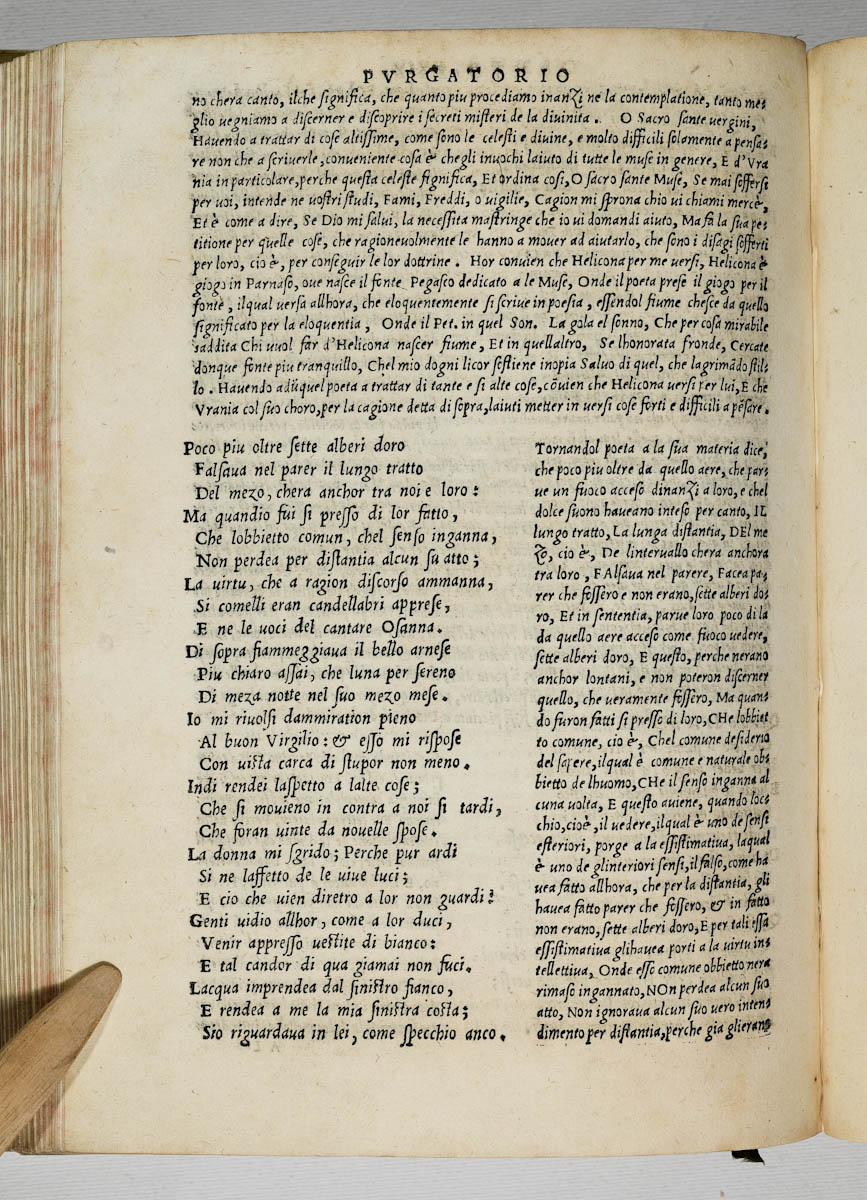 PVRGATORIO
no chera canto, ilche ſignifica, che quanto piu procediamo inanzi ne la contemplatione, tanto me⸗
glio uegniamo a diſcerner e diſcoprire i ſecreti miſteri de la diuinita. O Sacro ſante uergini,
Hauendo a trattar di coſe altiſſime, come ſono le celeſti e diuine, e molto difficili ſolamente a penſa⸗
re non che a ſcriuerle, conueniente coſa è chegli inuochi laiuto di tutte le muſe in genere, E d'Vra
nia in particolare, perche queſta celeſte ſignifica, Et ordina coſi, O ſacro ſante Muſe, Se mai ſofferſi
per uoi, intende ne uoſtri ſtudi, Fami, Freddi, o uigilie, Cagion mi ſprona chio ui chiami mercè,
Et è come a dire, Se Dio mi ſalui, la neceſſita maſtringe che io ui domandi aiuto, Ma fa la ſua pe⸗
titione per quelle coſe, che ragioneuolmente le hanno a mouer ad aiutarlo, che ſono i diſagi ſofferti
per loro, cio è, per conſeguir le lor dottrine. Hor conuien che Helicona per me uerſi, Helicona è
giogo in Parnaſo, oue naſce il fonte Pegaſeo dedicato a le Muſe, Onde il poeta preſe il giogo per il
fonte, ilqual uerſa allhora, che eloquentemente ſi ſcriue in poeſia, eſſendol fiume cheſce da quello
ſignificato per la eloquentia, Onde il Pet. in quel Son. La gola el ſonno, Che per coſa mirabile
saddita Chi uuol far d'Helicona naſcer fiume, Et in quellaltro, Se lhonorata fronde, Cercate
donque fonte piu tranquillo, Chel mio dogni licor ſoſtiene inopia Saluo di quel, che lagrimãdo ſtil⸗
lo. Hauendo adũquel poeta a trattar di tante e ſi alte coſe, cõuien che Helicona uerſi per lui, E che
Vrania col ſuo choro, per la cagione detta di ſopra, laiuti metter in uerſi coſe forti e difficili a pẽſare.
Poco piu oltre ſette alberi doro
Falſaua nel parer il lungo tratto
Del mezo, chera anchor tra noi e loro:
Ma quandio fui ſi preſſo di lor fatto,
Che lobbietto comun, chel ſenſo inganna,
Non perdea per diſtantia alcun ſu atto;
La uirtu, che a ragion diſcorſo ammanna,
Si comelli eran candellabri appreſe,
E ne le uoci del cantare Oſanna.
Di ſopra fiammeggiaua il bello arneſe
Piu chiaro aſſai, che luna per ſereno
Di meza notte nel ſuo mezo meſe.
Io mi riuolſi dammiration pieno
Al buon Virgilio: & eſſo mi riſpoſe
Con uiſta carca di ſtupor non meno.
Indi rendei laſpetto a lalte coſe;
Che ſi mouieno in contra a noi ſi tardi,
Che foran uinte da nouelle ſpoſe.
La donna mi ſgrido; Perche pur ardi
Si ne laffetto de le uiue luci;
E cio che uien diretro a lor non guardi?
Genti uidio allhor, come a lor duci,
Venir appreſſo ueſtite di bianco:
E tal candor di qua giamai non fuci.
Lacqua imprendea dal ſiniſtro fianco,
E rendea a me la mia ſiniſtra coſta;
Sio riguardaua in lei, come ſpecchio anco.
Tornandol poeta a la ſua materia dice,
che poco piu oltre da quello aere, che par⸗
ue un fuoco acceſo dinanzi a loro, e chel
dolce ſuono haueano inteſo per canto, IL
lungo tratto, La lunga diſtantia, DEl me
zo, cio è, De linteruallo chera anchora
tra loro, FAlſaua nel parere, Facea pa⸗
rer che foſſero e non erano, ſette alberi do⸗
ro, Et in ſententia, parue loro poco di la
da quello aere acceſo come fuoco uedere,
ſette alberi doro, E queſto, perche nerano
anchor lontani, e non poteron diſcerner
quello, che ueramente foſſero, Ma quan⸗
do furon fatti ſi preſſo di loro, CHe lobbiet
to comune, cio è, Chel comune deſiderio
del ſapere, ilqual è comune e naturale ob⸗
bietto de lhuomo, CHe il ſenſo inganna al
cuna uolta, E queſto auiene, quando loc⸗
chio, cioè, il uedere, ilqual è uno de ſenſi
eſteriori, porge a la eſſiſtimatiua, laqual
è uno de glinteriori ſenſi, il falſo, come ha
uea fatto allhora, che per la diſtantia, gli
hauea fatto parer che foſſero, & in fatto
non erano, ſette alberi doro, E per tali eſſa
eſſiſtimatiua glihauea porti a la uirtu in⸗
tellettiua, Onde eſſo comune obbietto nera
rimaſo ingannato, NOn perdea alcun ſuo
atto, Non ignoraua alcun ſuo uero inten⸗
dimento per diſtantia, perche gia glierano